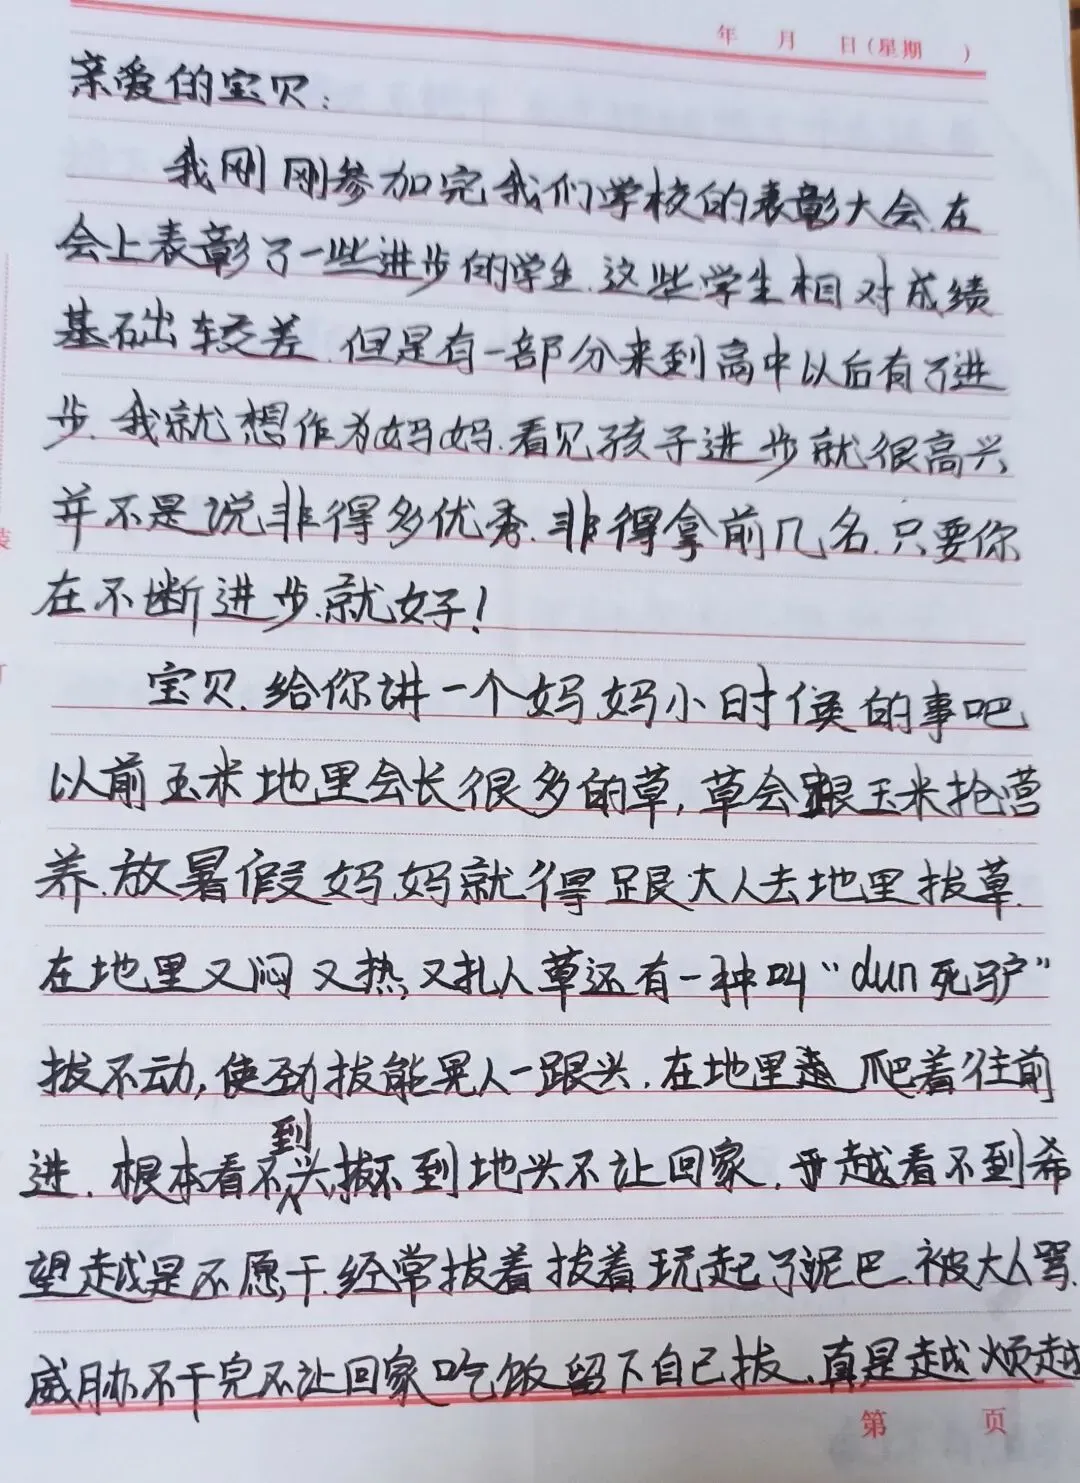 年 月 日(星期 )
亲爱的宝贝:
我刚刚参加完我们学校的表彰大会.在
会上表彰了一些进步的学生.这些学生相对成绩
基础较差.但是有一部分来到高中以后有了进
步.我就想作为妈妈.看见孩子进步就很高兴
并不是说非得多优秀.非得拿前几名.只要你
在不断进步.就好!
宝贝.给你讲一个妈妈小时候的事吧
以前玉米地里会长很多的草,草会跟玉米抢营
养.放暑假妈妈就得跟大人去地里拔草.
在地里又闷又热,又扎人草还有一种叫“dun死驴”
拔不动,使劲拔能晃人一跟头.在地里 爬着往前
进.根本看不到头,拔不到地头不让回家. 越看不到希
望越是不愿干.经常拔着拔着玩起了泥巴.被大人骂.
威胁不干完不让回家吃饭留下自己拔.真是越烦越
第 页
装